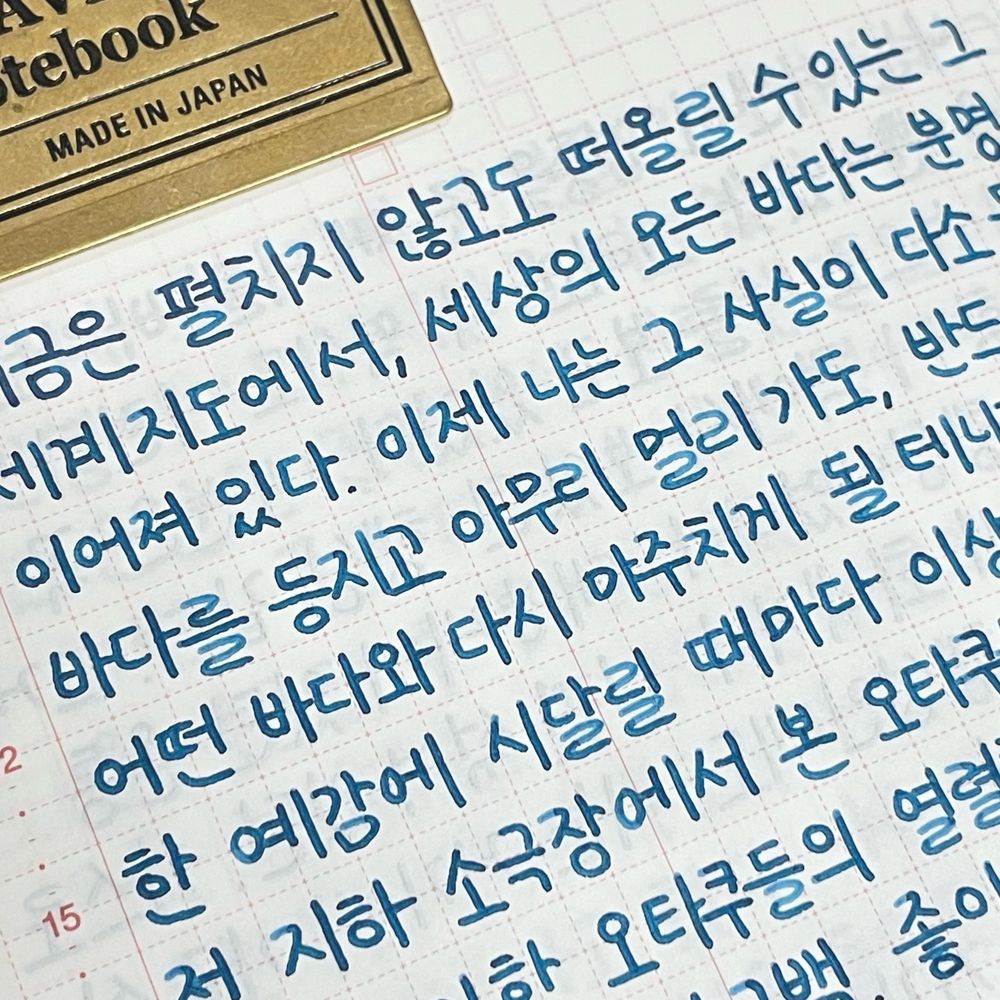 notebook
MADE IN JAPAN
금은 펼치지 않고도 떠올릴 수 있는 그
세계지도에서, 세상의 모든 바다는 분명
이어져 있다. 이제 나는 그 사실이 다소
바다를 등지고 아무리 멀리 가도, 반드
어떤 바다와 다시 마주치게 될 테니
한 예감에 시달릴 때마다 이상
12
저 지하 소극장에서 본 오타쿠
15
오타쿠들의 열렬
좋아